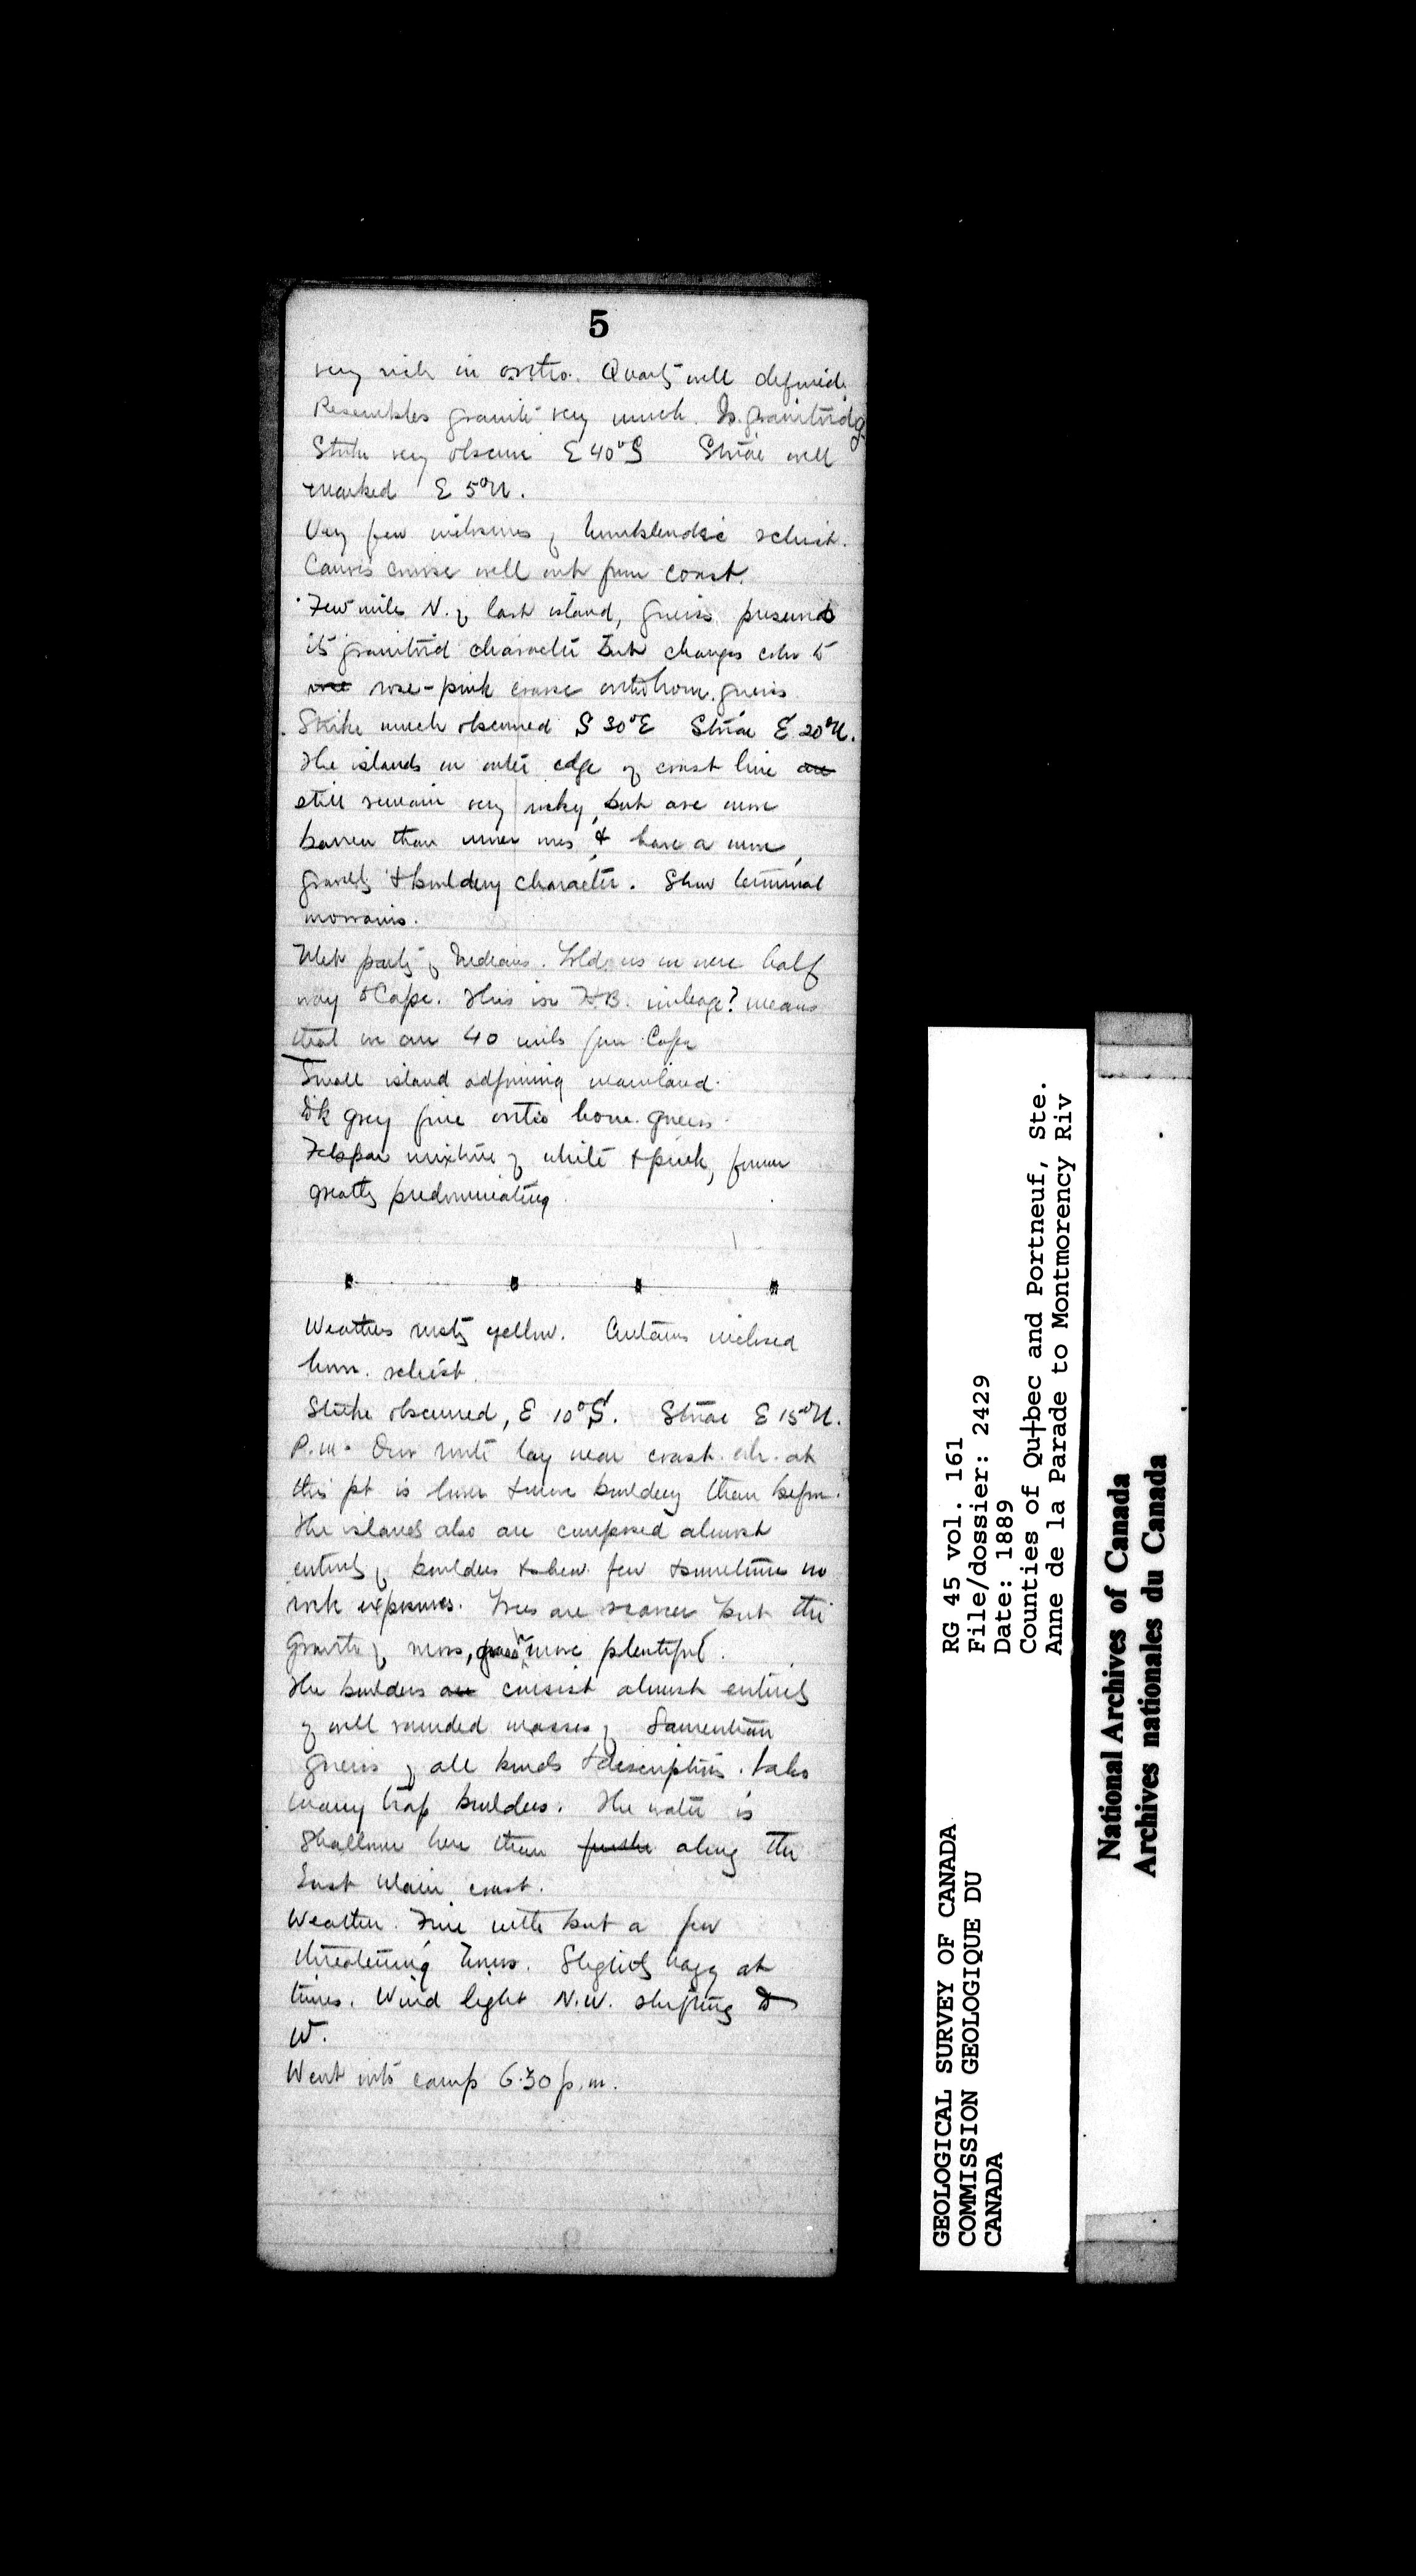 5
very rich in ortho. Quartz well defined.
Resembles granite very much. Is granitoid g.
Strike very obscure E 40° S Striae well
marked E 5° N.
Very few inclusions of hornblendic schist.
Canoes cruise well out from coast.
Few miles N. of last island, gneiss
its granitoid character but changes color to
rose-pink coarse ortho horn. gneiss
Strike much obscured S 30° E Striae E 20° N.
The islands on outer edge of coast line are
still remain very rocky, but are more
barren than inner ones, & have a more
gravely & bouldery character. Show terminal
morrains.
Met party of Indians. Told us we were half
way to Cape. This in H.B. mileage? means
that we are 40 miles from Cape
Small island adjoining mainland.
Dk grey fine ortho horn. gneiss
Felspar mixture of white & pink, former
greatly predominating.
Weathers rusty yellow. Contains inclosed
horn. schist.
Strike obscured, E 10° S. Striae E 15° N.
P.m. Our route lay near coast. wh. at
this pt is lower & more bouldery than before.
The islands also are composed almost
entirely of boulders & show few & sometimes no
rock exposures. Trees are scarcer but the
growth of moss, grass more plentiful.
The boulders are consist almost entirely
of well rounded masses of Laurentian
gneiss of all kinds & descriptions. & also
many trap boulders. The water is
shallower here than further along the
East Main coast.
Weather. Fine with but a few
threatening times. Slightly hazy at
times. Wind light N.W. shifting to
W.
Went into camp 6.30 p.m.
GEOLOGICAL SURVEY OF CANADA
COMMISSION GEOLOGIQUE DU
CANADA
RG 45 vol. 161
File/dossier: 2429
Date: 1889
Counties of Qu†bec and Portneuf, Ste.
Anne de la Parade to Montmorency Riv
National Archives of Canada
Archives nationales du Canada